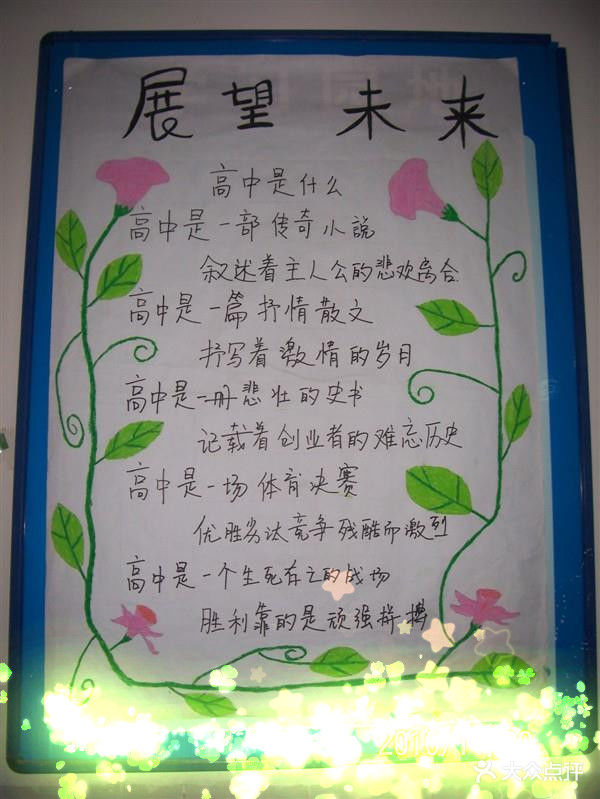 展望未来
高中是什么
高中是一部传奇小說
叙述着主人公的悲欢离合
高中是一篇抒情散文
抒写着激情的岁月
高中是一册悲壮的史书
记载着创业者的难忘历史
高中是一场体育决赛
优胜劣汰竞争残酷而激烈
高中是一个生死存亡的战场
胜利靠的是顽强拼搏
2010/1
大众点评